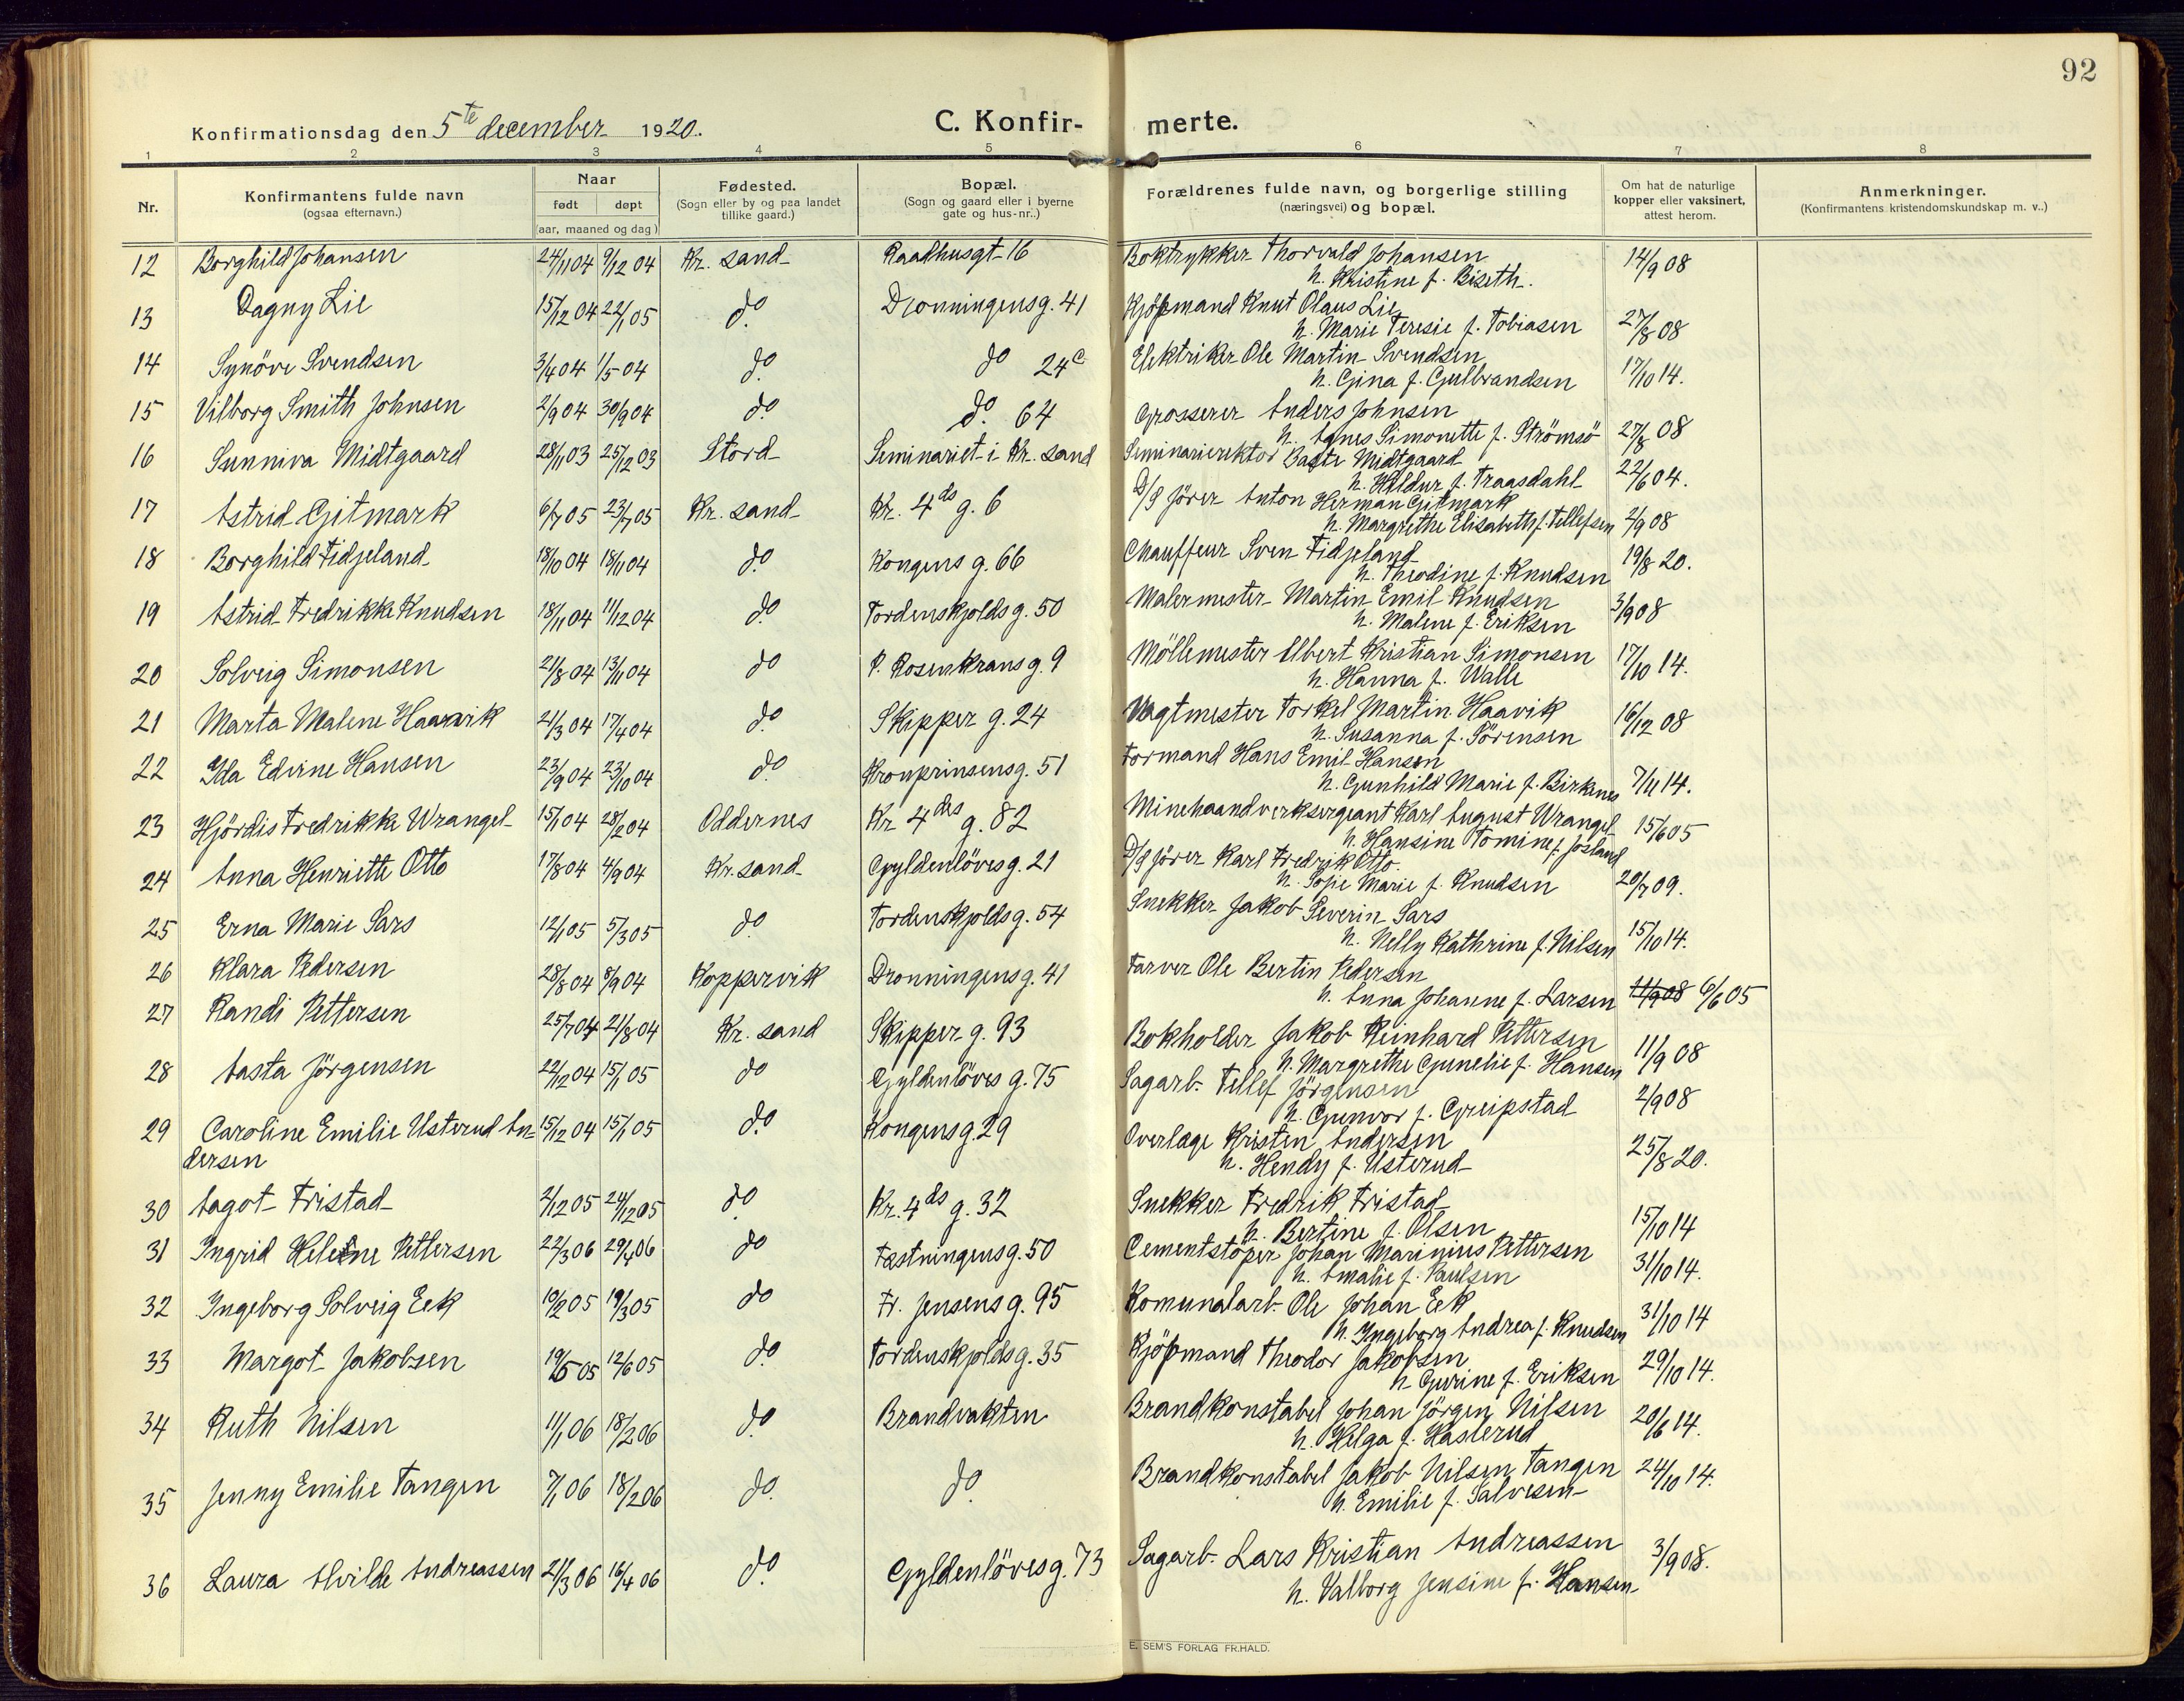 92
Konfirmationsdag den 5te december 1920.
C. Konfir- merte.
1 2 3 4 5 6 7 8
Nr.
Konfirmantens fulde navn
(ogsaa efternavn.)
Naar
født døpt
(aar, maaned og dag)
Fødested.
(Sogn eller by og paa landet
tillike gaard.)
Bopæl.
(Sogn og gaard eller i byerne
gate og hus-nr.)
Forældrenes fulde navn, og borgerlige stilling
(næringsvei) og bopæl.
Om hat de naturlige
kopper eller vaksinert,
attest herom.
Anmerkninger.
(Konfirmantens kristendomskundskap m. v..)
12 Borghild Johansen 24/11 04 9/12 04 Kr. sand Raadhusgt 16 Boktrykker Thorvald Johansen 14/9 08
h. Kristine f. Biseth.
13 Dagny Lie 15/12 04 22/1 05 do Dronningensg. 41 Kjøpmand Knut Olaus Lie 27/8 08
h. Marie Teresie f. Tobiasen
14 Synöve Svendsen 3/4 04 1/5 04 do do 24c Elektriker Ole Martin Svendsen 17/10 14.
h. Gina f. Gulbrandsen
15 Vilborg Smith Johnsen 2/9 04 30/9 04 do do 64 Grosserer Anders Johnsen 27/8 08
h. Agnes Simonette f. Strömsö
16 Sunniva Midtgaard 28/11 03 25/12 03 Stord Seminariet i Kr. sand Seminarierektor Baste Midtgaard 22/6 04.
h. Hildur f. Traasdahl
17 Astrid Gitmark 6/7 05 23/7 05 Kr. sand Kr. 4ds g. 6 D/S fører Anton Herman Gitmark 2/9 08
h. Margrethe Elisabeth f. Tellefsen
18 Borghild Fidjeland 18/10 04 18/11 04 do Kongens g. 66 Chauffeur Sven Fidjeland 19/8 20.
h. Theodine f. Knudsen
19 Astrid Fredrikke Knudsen 18/11 04 11/12 04 do Tordenskjoldsg. 50 Malermester Martin Emil Knudsen 3/9 08
h. Malene f. Eriksen
20 Solveig Simonsen 21/8 04 13/11 04 do P. Rosenkrans g. 9 Möllemester Albert Kristian Simonsen 17/10 14.
h. Hanna f. Walle
21 Marta Malene Haavik 21/3 04 17/4 04 do Skipper g. 24 Vagtmester Torkel Martin Haavik 16/12 08
h. Susanna f. Sörensen
22 Ida Edvine Hansen 23/9 04 23/10 04 do Kronprinsensg. 51 Formand Hans Emil Hansen 7/11 14.
h. Gunhild Marie f. Birkenes
23 Hjördis Fredrikke Wrangel 15/1 04 28/2 04 Oddernes Kr 4des g. 82 Minehaandverksergeant Karl August Wrangel 15/6 05
h. Hansine Tomine f. Josland
24 Anna Henriette Otto 17/8 04 4/9 04 Kr. sand Gyldenlöves g. 21 D/S förer Karl Fredrik Otto. 20/7 09.
h. Sofie Marie f. Knudsen
25 Erna Marie Sars 12/1 05 5/3 05 do Tordenskjoldsg. 54 Snekker Jakob Severin Sars 15/10 14.
h. Nelly Kathrine f. Nilsen
26 Klara Pedersen 28/8 04 8/9 04 Koppervik Dronningensg. 41 Farver Ole Bertin Pedersen 11/9 08 6/6 05
h. Anna Johanne f. Larsen
27 Randi Pettersen 25/7 04 21/8 04 Kr. sand Skipper g. 93 Bokholder Jakob Reinhard Pettersen 11/9 08
h. Margrethe Gunelie f. Hansen
28 Aasta Jörgensen 22/12 04 15/1 05 do Gyldenlöves g. 75 Sagarb. Tellef Jörgensen 2/9 08
h. Gunvor f. Greipstad
29 Caroline Emilie Usterud An- 15/12 04 15/1 05 do Kongensg. 29 Overlæge Kristen Andersen 25/8 20.
dersen h. Hendy f. Usterud
30 Aagot Fristad 2/12 05 24/12 05 do Kr. 4ds g. 32 Snekker Fredrik Fristad 15/10 14
h. Bertine f. Olsen
31 Ingrid Helene Pettersen 22/3 06 29/4 06 do Fæstningensg. 50 Cementstøper Johan Marinius Pettersen 31/10 14.
h. Amalie f. Paulsen
32 Ingeborg Solveig Eek 10/2 05 19/3 05 do Fr. Jensens g. 95 Komunalarb. Ole Johan Eek 31/10 14
h. Ingeborg Andrea f. Knudsen
33 Margot Jakobsen 19/5 05 12/6 05 do Tordenskjoldsg. 35 Kjøpmand Theodor Jakobsen 29/10 14.
h Gurine f. Eriksen
34 Ruth Nilsen 11/1 06 18/2 06 do Brandvakten Brandkonstabel Johan Jörgen Nilsen 20/6 14.
h. Helga f. Haslerud
35 Jenny Emilie Tangen 7/1 06 18/2 06 do do Brandkonstabel Jakob Nilsen Tangen 24/10 14.
h. Emilie f. Salvesen
36 Laura Alvilde Andreassen 21/3 06 16/4 06 do Gyldenlövesg. 73 Sagarb. Lars Kristian Andreassen 3/9 08.
h. Valborg Jensine f. Hansen
E. SEM'S FORLAG FR.HALD.